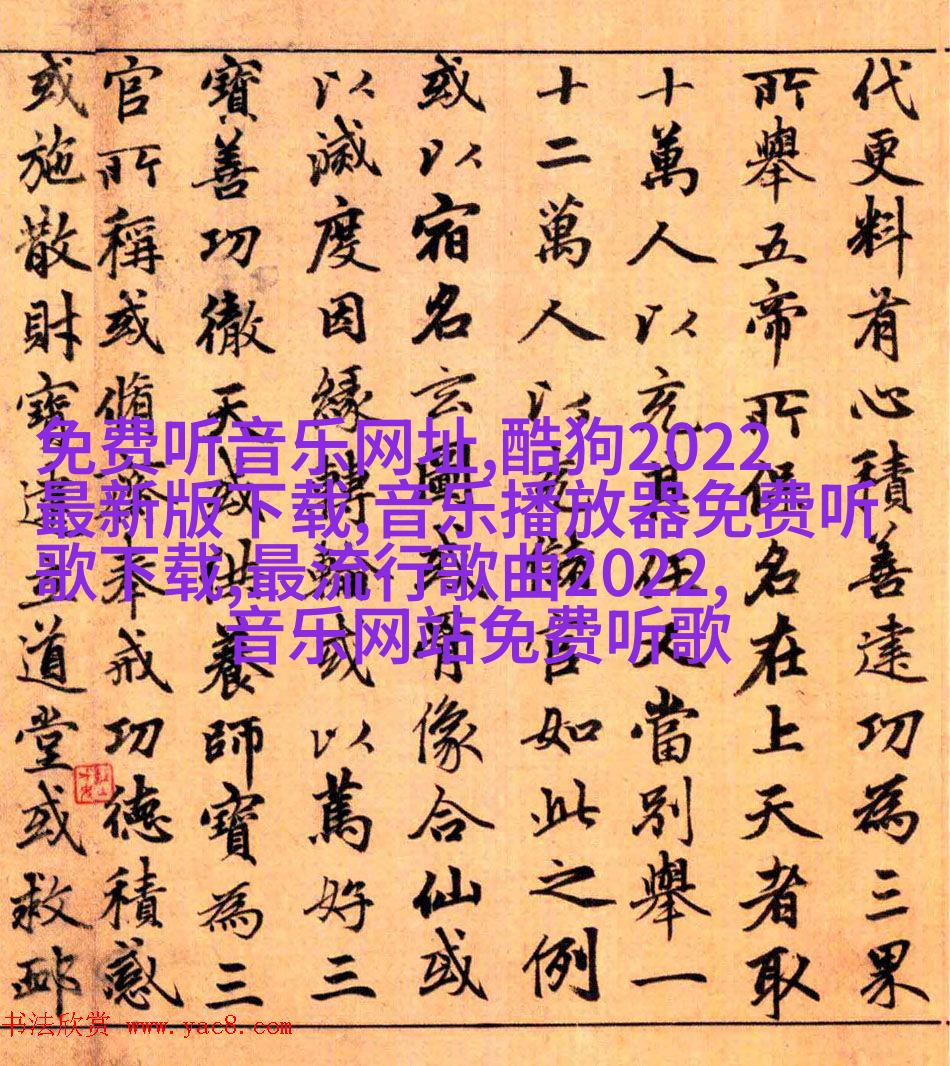 代更料有心積善建功為三果
所舉五帝所保名在上天者取
十萬人以充其任又當別舉一
十二萬人以充如此之例
或以宿名玄圖像合仙或
以滅度因緣轉輪或以篤好三
寶善功徹天或供養師寶為三
官所稱或脩齋奉戒功德積感
或施散財寶建立道堂或救
免费听音乐网址,酷狗2022
最新版下载,音乐播放器免费听
歌下载,最流行歌曲2022,
音乐网站免费听歌
书法欣赏 www.yac8.com